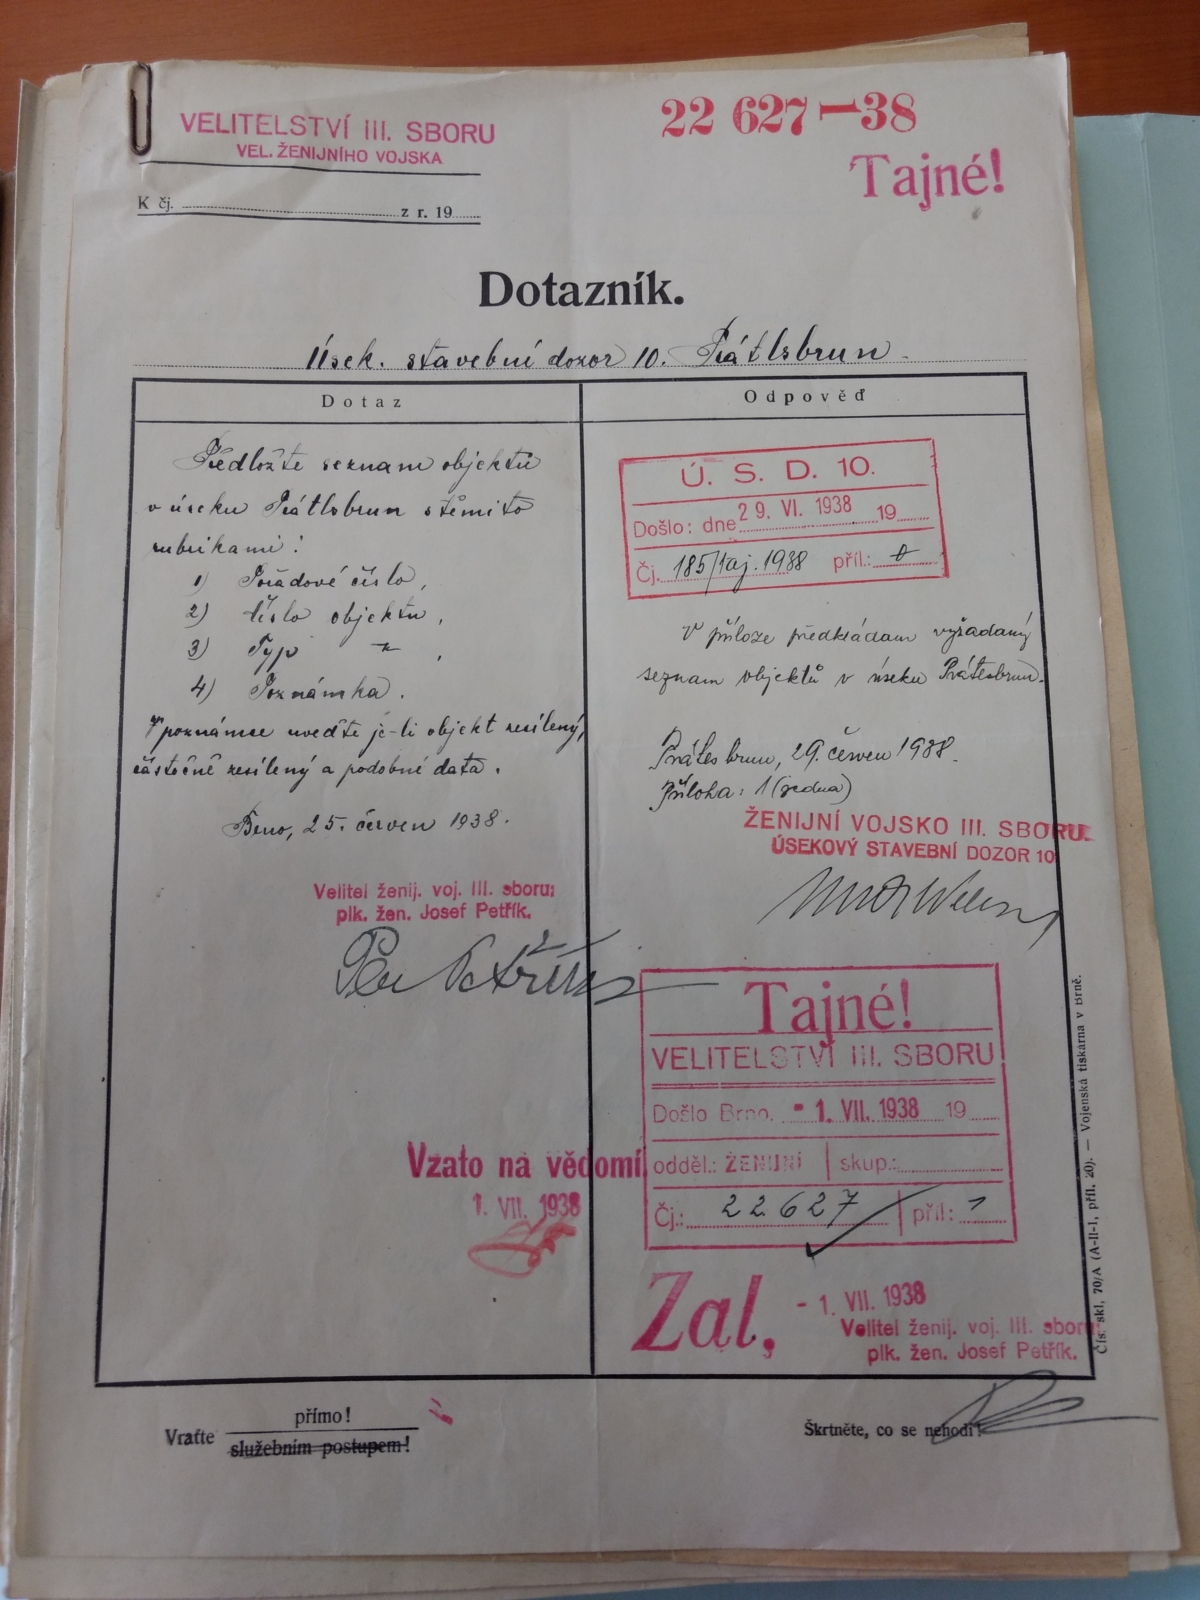 VELITELSTVÍ III. SBORU
VEL. ŽENIJNÍHO VOJSKA
22 627-38
Tajné!
K čj. z r. 19
Dotazník.
Úsek. stavební dozor 10. Prátlsbrun.
Dotaz
Odpověď
Předložte seznam objektů
v úseku Prátlsbrun s těmito
rubrikami:
1) Pořadové číslo,
2) číslo objektu,
3) Typ " ,
4) Poznámka.
V poznámce uveďte je-li objekt zesílený,
částečně zesílený a podobné data.
Brno, 25. červen 1938.
Velitel ženij. voj. III. sboru:
plk. žen. Josef Petřík.
Vzato na vědomí
1. VII. 1938
Ú. S. D. 10.
Došlo: dne 29. VI. 1938 19
Čj. 185/taj. 1938 příl.: 0
V příloze předkládám vyžádaný
seznam objektů v úseku Prátlsbrun.
Prátlsbrun, 29. červen 1938.
Příloha: 1 (jedna)
ŽENIJNÍ VOJSKO III. SBORU.
ÚSEKOVÝ STAVEBNÍ DOZOR 10
Tajné!
VELITELSTVÍ III. SBORU
Došlo Brno. - 1. VII. 1938 19
odděl.: ŽENIJNÍ skup.:
Čj.: 22627 příl: 1
Zal,
- 1. VII. 1938
Velitel ženij. voj. III. sboru
plk. žen. Josef Petřík.
Čís. skl. 70/A (A-II-1, příl. 20). — Vojenská tiskárna v Brně.
Vraťte přímo!
služebním postupem!
Škrtněte, co se nehodí!